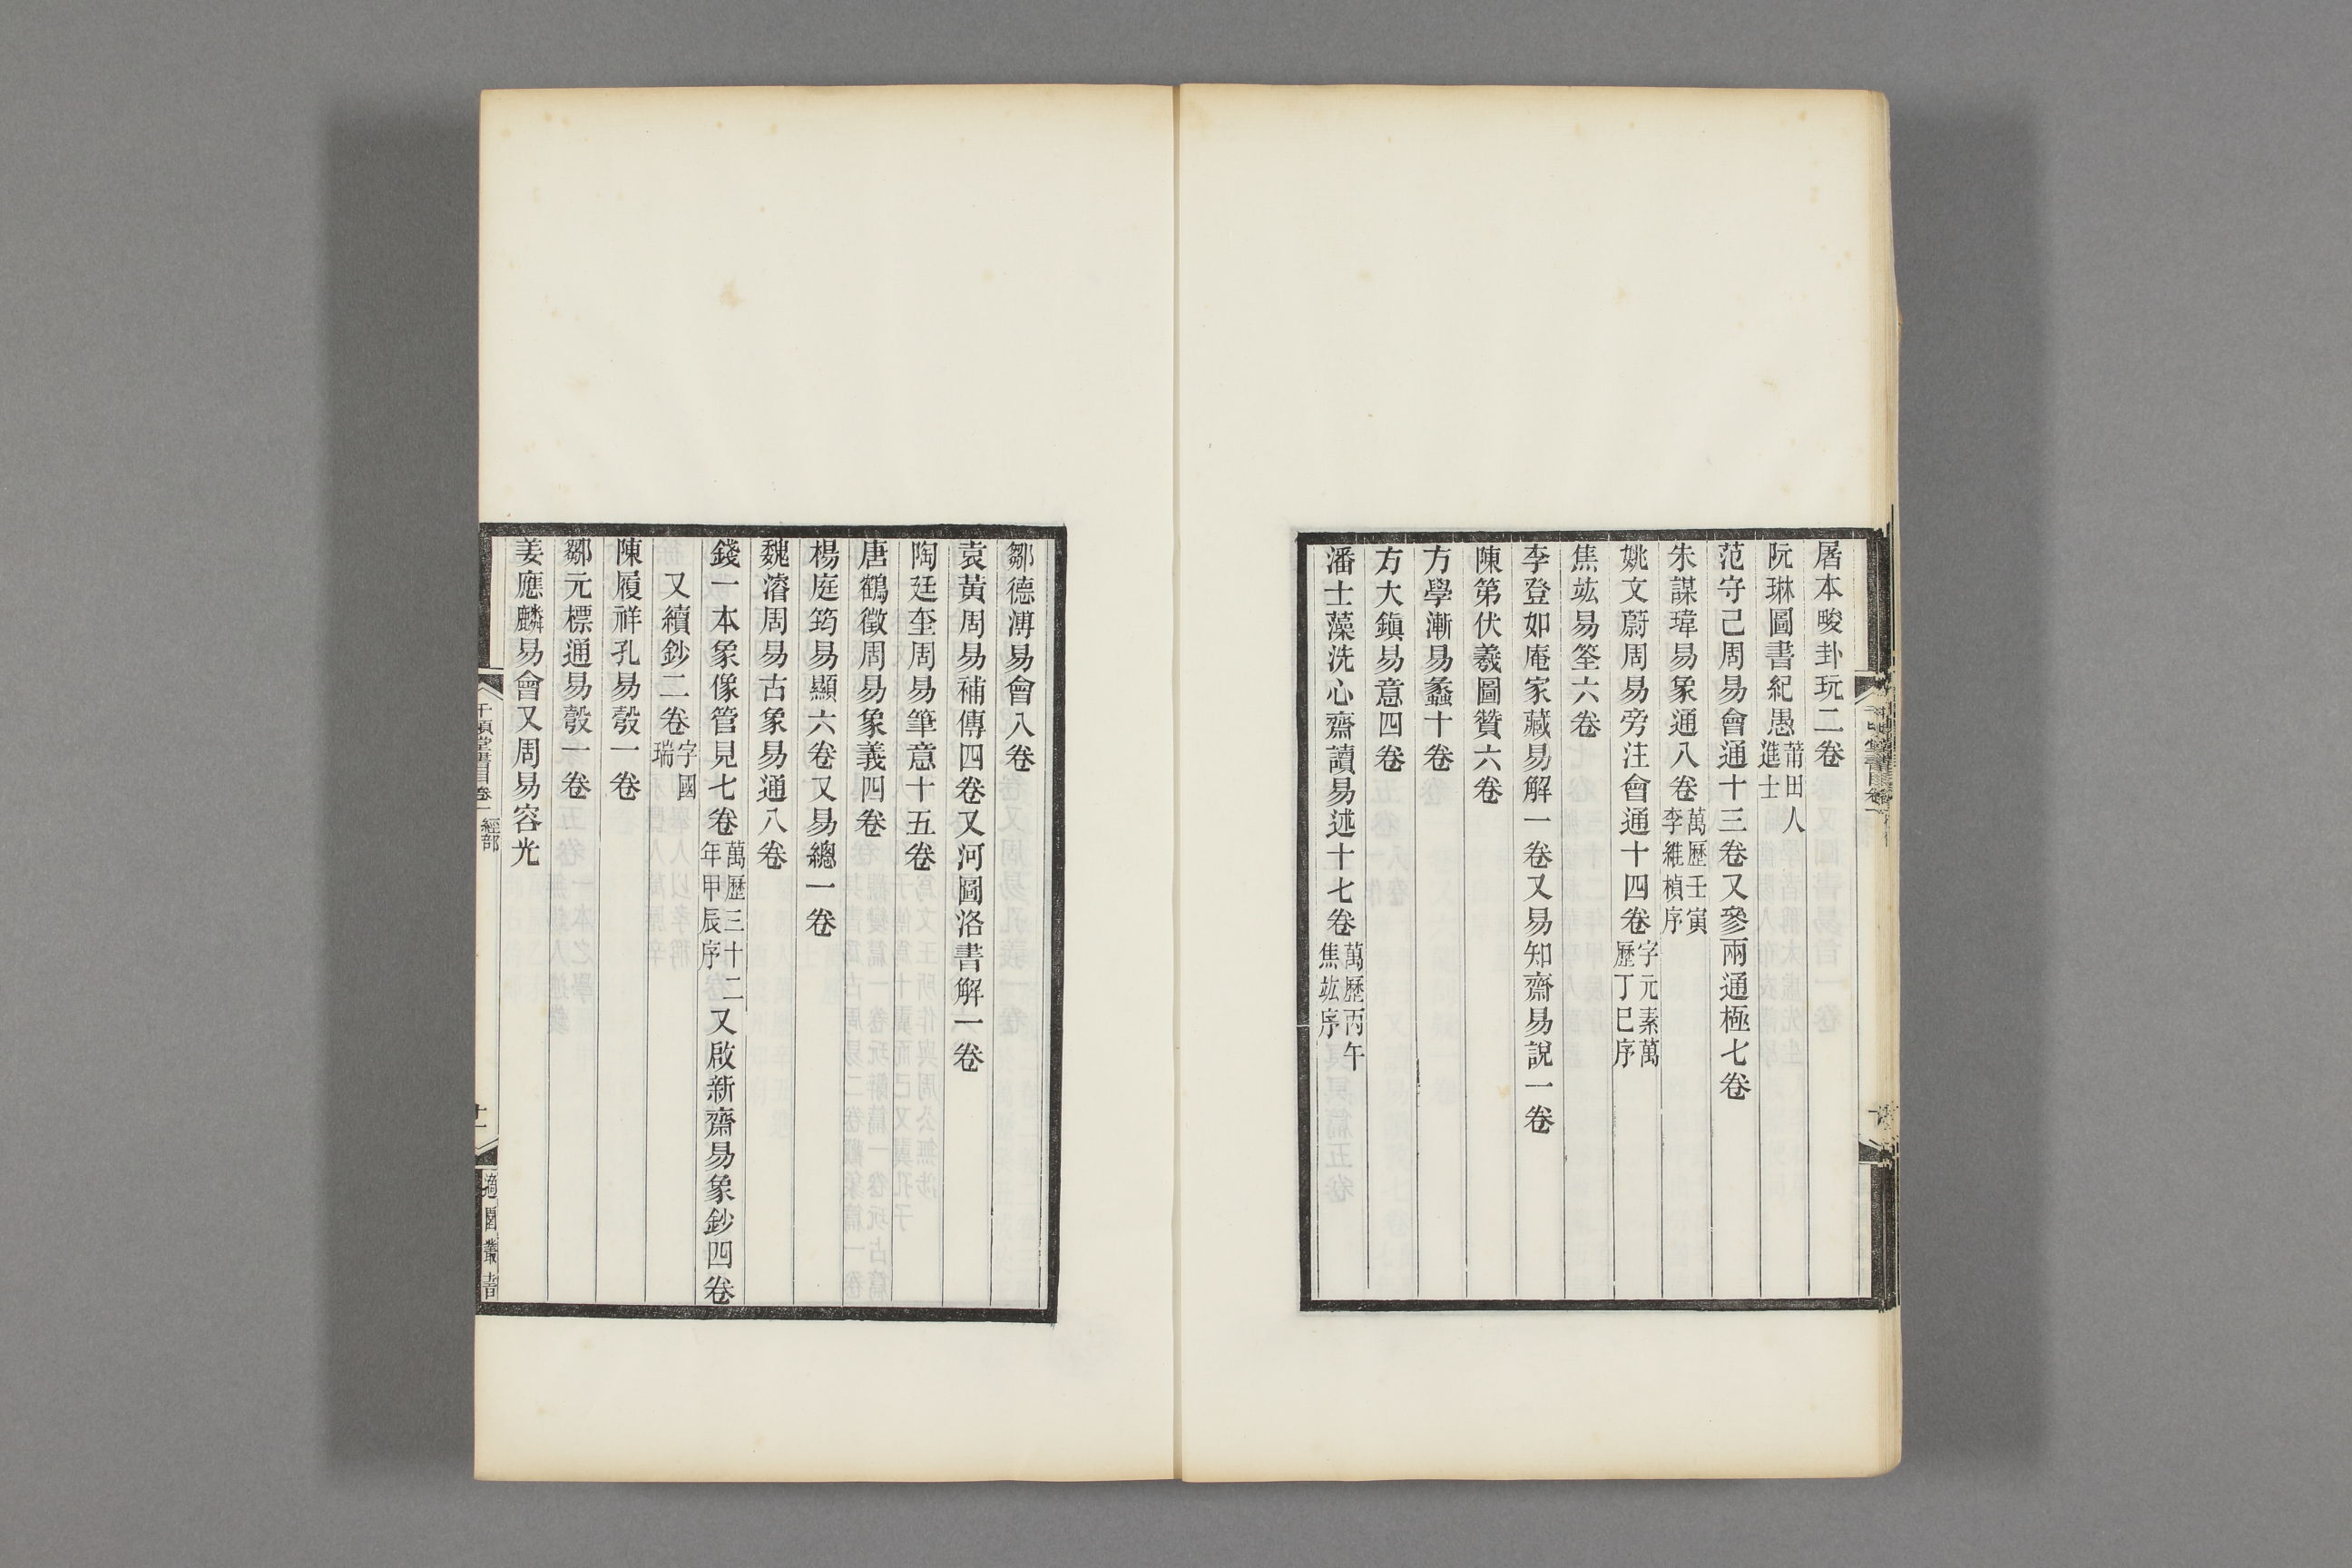 屠本畯卦玩二卷
阮琳圖書紀愚莆田人進士
范守己周易會通十三卷又參兩通極七卷
朱謀㙔易象通八卷萬歷壬寅李維楨序
姚文蔚周易旁注會通十四卷字元素萬歷丁巳序
焦竑易筌六卷
李登如庵家藏易解一卷又易知齋易說一卷
陳第伏羲圖贊六卷
方學漸易蠡十卷
方大鎮易意四卷
潘士藻洗心齋讀易述十七卷萬歷丙午焦竑序
鄒德溥易會八卷
袁黃周易補傳四卷又河圖洛書解一卷
陶廷奎周易筆意十五卷
唐鶴徵周易象義四卷
楊庭筠易顯六卷又易總一卷
魏濬周易古象易通八卷
錢一本象像管見七卷萬歷三十二年甲辰序又啟新齋易象鈔四卷
又續鈔二卷字國瑞
陳履祥孔易彀一卷
鄒元標通易彀一卷
姜應麟易會又周易容光
千頃堂書目卷一 經部
十一
適園叢書